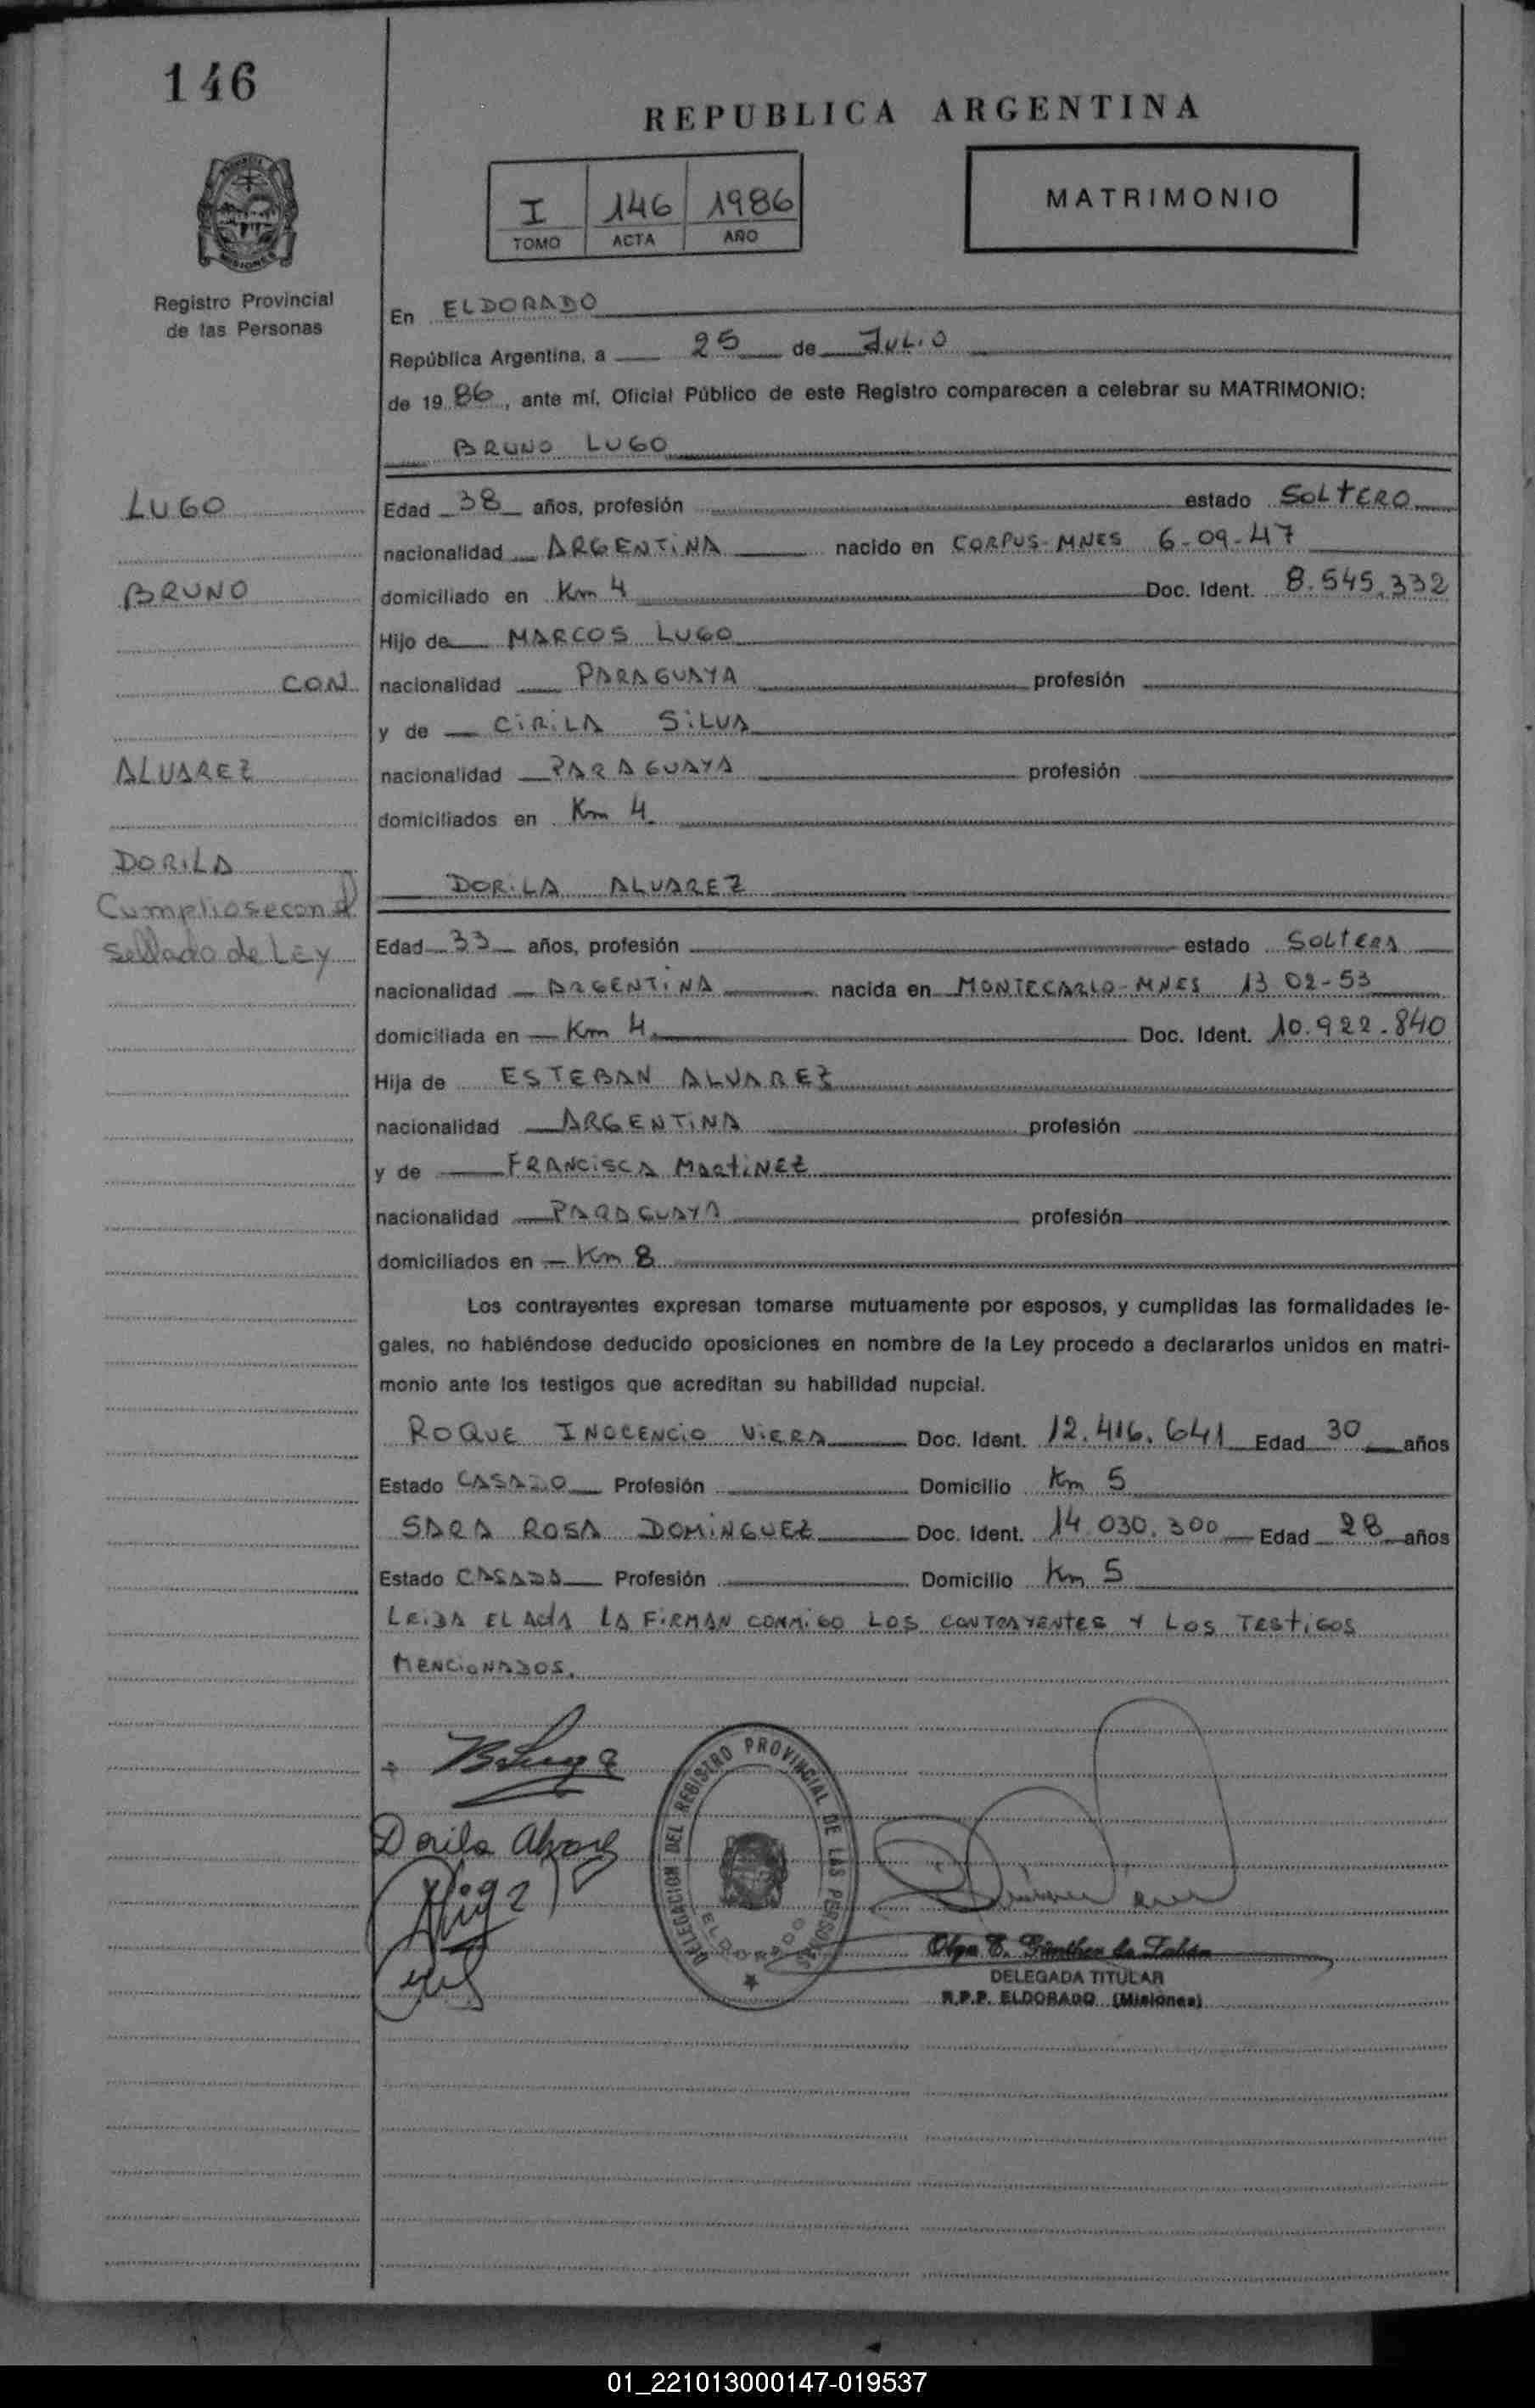 146
REPUBLICA ARGENTINA
I 146 1986
TOMO ACTA AÑO
MATRIMONIO
Registro Provincial
de las Personas
En ELDORADO
República Argentina, a 25 de JULIO
de 1986, ante mí, Oficial Público de este Registro comparecen a celebrar su MATRIMONIO:
BRUNO LUGO
LUGO
Edad 38 años, profesión estado SOLTERO
nacionalidad ARGENTINA nacido en CORPUS-MNES 6-09-47
BRUNO
domiciliado en Km 4 Doc. Ident. 8.545.332
Hijo de MARCOS LUGO
CON
nacionalidad PARAGUAYA profesión
y de CIRILA SILVA
ALVAREZ
nacionalidad PARAGUAYA profesión
domiciliados en Km 4
DORILA
DORILA ALVAREZ
Cumpliose con el
sellado de LEY
Edad 33 años, profesión estado SOLTERA
nacionalidad ARGENTINA nacida en MONTECARLO-MNES 13 02-53
domiciliada en Km 4 Doc. Ident. 10.922.840
Hija de ESTEBAN ALVAREZ
nacionalidad ARGENTINA profesión
y de FRANCISCA MARTINEZ
nacionalidad PARAGUAYA profesión
domiciliados en Km 8
Los contrayentes expresan tomarse mutuamente por esposos, y cumplidas las formalidades le-
gales, no habiéndose deducido oposiciones en nombre de la Ley procedo a declararlos unidos en matri-
monio ante los testigos que acreditan su habilidad nupcial.
ROQUE INOCENCIO VIERA Doc. Ident. 12.416.641 Edad 30 años
Estado CASADO Profesión Domicilio Km 5
SARA ROSA DOMINGUEZ Doc. Ident. 14.030.300 Edad 28 años
Estado CASADA Profesión Domicilio Km 5
LEIDA EL ACTA LA FIRMAN CONMIGO LOS CONTRAYENTES Y LOS TESTIGOS
MENCIONADOS.
B Lugo
Dorila Alvarez
DELEGACION DEL REGISTRO PROVINCIAL DE LAS PERSONAS
ELDORADO
Olga E. Günther de
DELEGADA TITULAR
R.P.P. ELDORADO (Misiones)
01_221013000147-019537